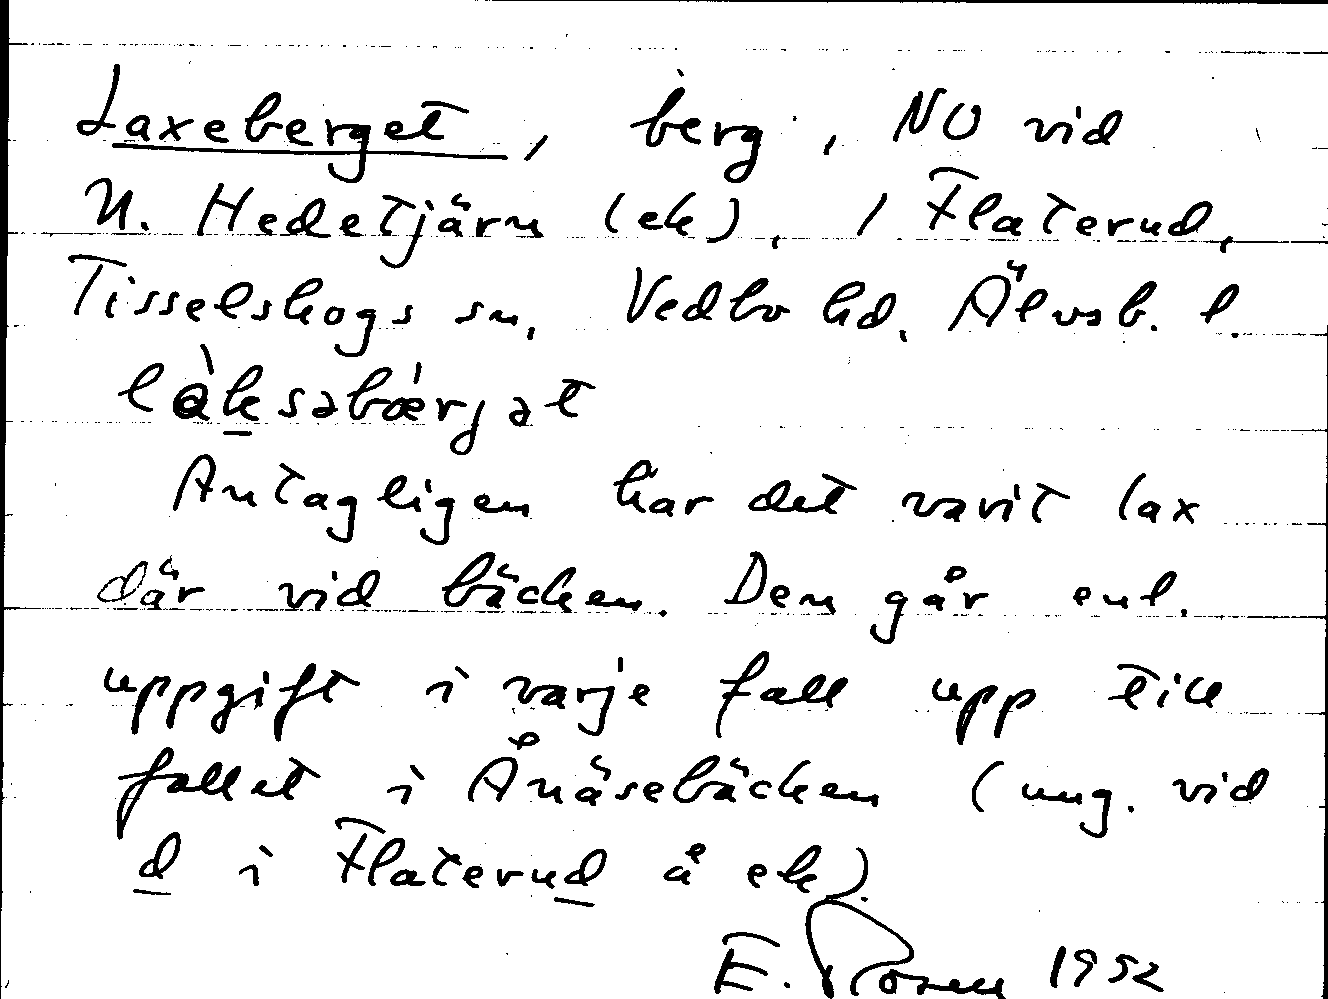 Laxeberget, berg, NO vid
N. Hedetjärn (ek), i Flaterud,
Tisselskogs sn, Vedbo hd, Älvsb. l.
làksəbǽrjət
Antagligen har det varit lax
där vid bäcken. Den går enl.
uppgift i varje fall upp till
fallet i Ånäsebäcken (ung. vid
d i Flaterud å ek).
E. Rosen 1952